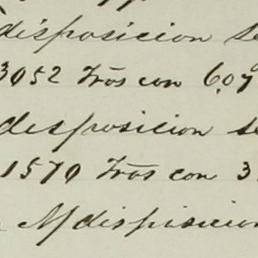 disposicion se
3052 Trós con 6.09
disposicion se
1570 Trós con 3
A/disposicion